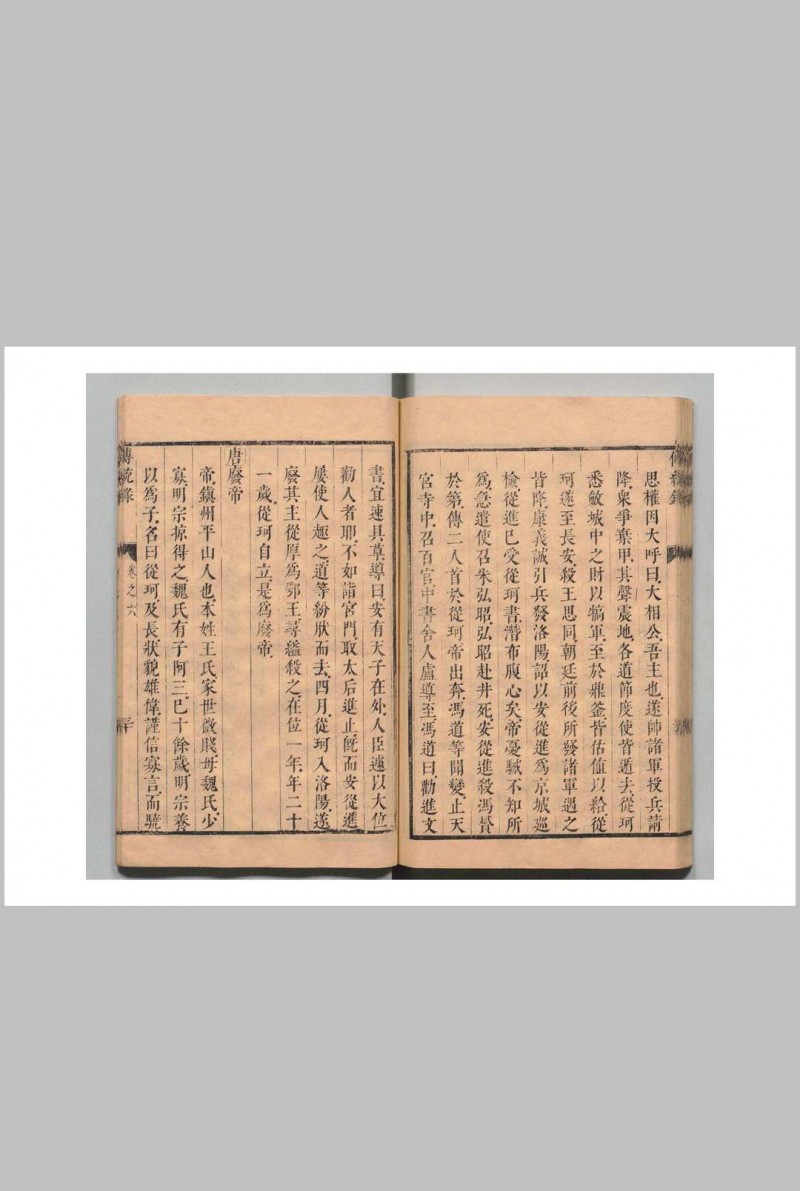 思權因大呼曰大相公吾主也遂帥諸軍投兵請
降衆爭棄甲其聲震地各道節度使皆遁去從珂
悉斂城中之財以犒軍至於鼎釜皆估值以給從
珂遂至長安殺王思同朝廷前後所發諸軍遇之
皆降康義誠引兵發洛陽詔以安從進爲京城巡
檢從進已受從珂書潛布腹心矣帝憂駴不知所
爲急遣使召朱弘昭弘昭赴井死安從進殺馮贇
於第傳二人首於從珂帝出奔馮道等聞變止天
宮寺中召百官中書舍人盧導至馮道曰勸進文
書宜速具草導曰安有天子在外人臣遽以大位
勸人者耶不如詣宮門取太后進止旣而安從進
屢使人趣之道等紛狀而去四月從珂入洛陽遂
廢其主從厚爲鄂王尋縊殺之在位一年年二十
一歲從珂自立是爲廢帝
唐廢帝
帝鎮州平山人也本姓王氏家世微賤母魏氏少
寡明宗掠得之魏氏有子阿三已十餘歲明宗養
以爲子名曰從珂及長狀貌雄偉謹信寡言而驍
傳統錄
卷之六
三十